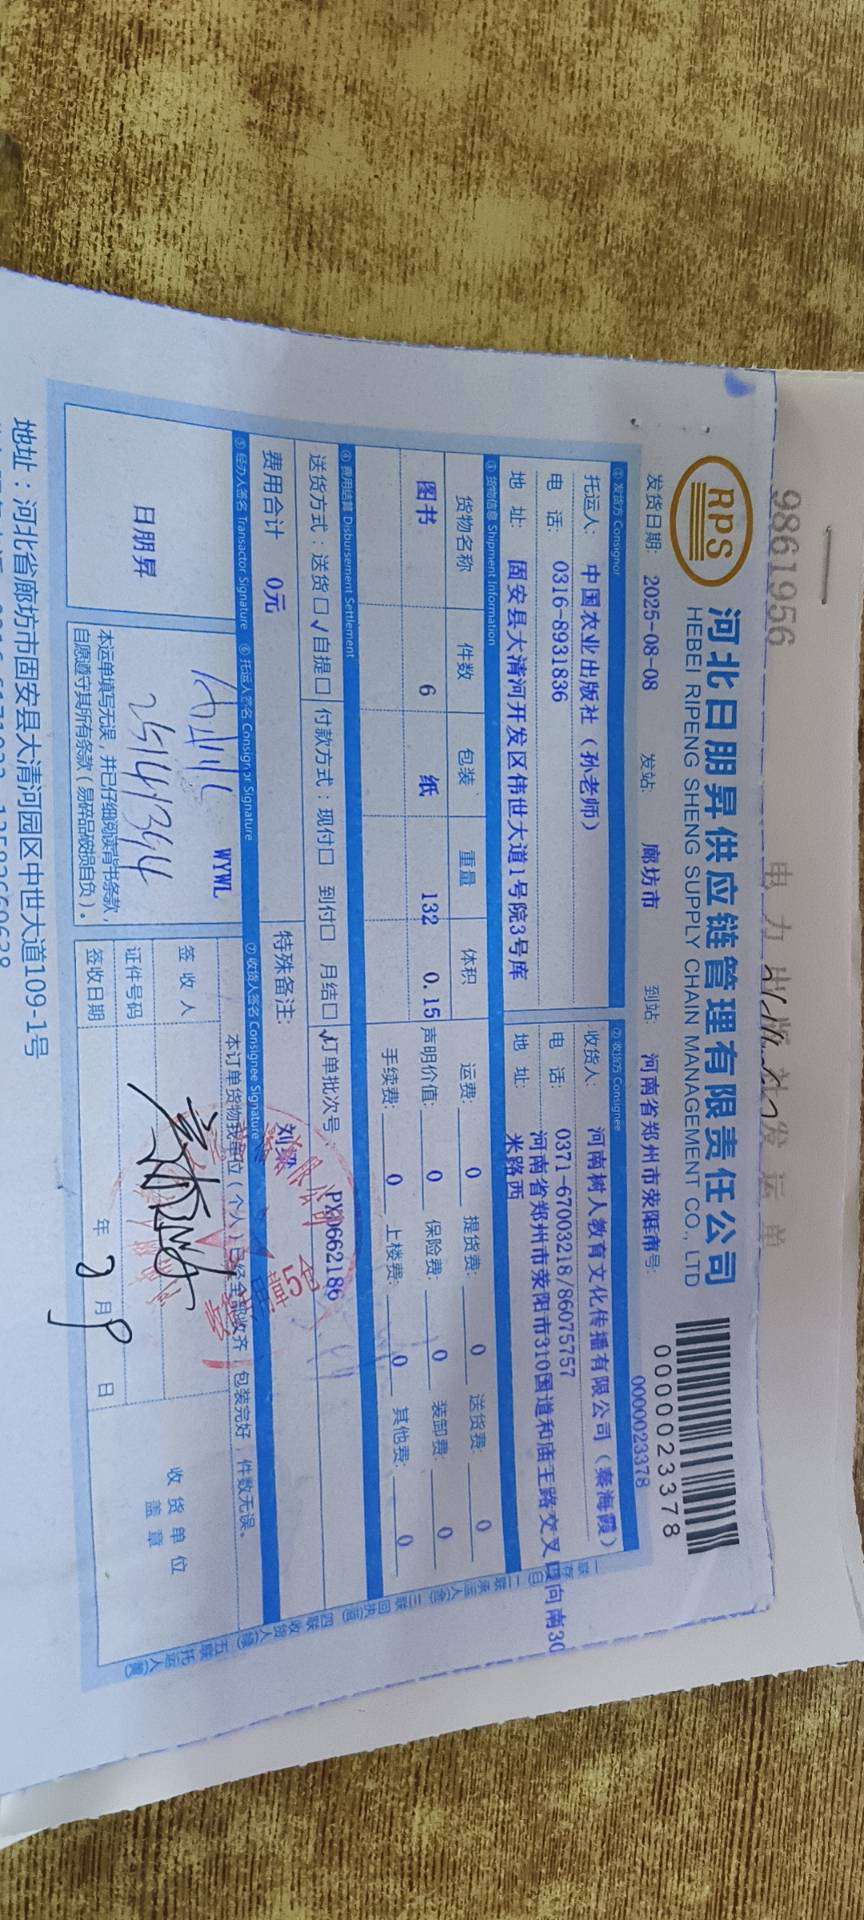 9861956
电力出版社发运单
RPS
河北日朋昇供应链管理有限责任公司
HEBEI RIPENG SHENG SUPPLY CHAIN MANAGEMENT CO., LTD
0000023378
发货日期: 2025-08-08 发站: 廊坊市 到站: 河南省郑州市荥阳市 号: 0000023378
① 发货方 Consignor ② 收货方 Consignee
托运人: 中国农业出版社（孙老师） 收货人: 河南树人教育文化传播有限公司（秦海霞）
电 话: 0316-8931836 电 话: 0371-67003218/86075757
地 址: 固安县大清河开发区伟世大道1号院3号库 地 址: 河南省郑州市荥阳市310国道和庙王路交叉口向南30
米路西
③ 货物信息 Shipment Information
货物名称 件数 包装 重量 体积 运费: 0 提货费: 0 送货费: 0
图书 6 纸 132 0.15 声明价值: 0 保险费: 0 装卸费: 0
手续费: 0 上楼费: 0 其他费: 0
④ 费用结算 Disbursement Settlement
送货方式: 送货□ √自提□ 付款方式: 现付□ 到付□ 月结□ √订单批次号: PX0662186
费用合计 0元 特殊备注: 刘梁
⑤ 经办人签名 Transactor Signature ⑥ 托运人签名 Consignor Signature ⑦ 收货人签名 Consignee Signature
WYWL 本订单货物我单位（个人）已经全部收齐，包装完好，件数无误。
日朋昇
签收人
25141394
证件号码
收货单位
盖章
本运单填写无误，并已仔细阅读背书条款，
自愿遵守其所有条款（易碎品破损自负）。
签收日期 年 2 月 9 日
地址：河北省廊坊市固安县大清河园区中世大道109-1号